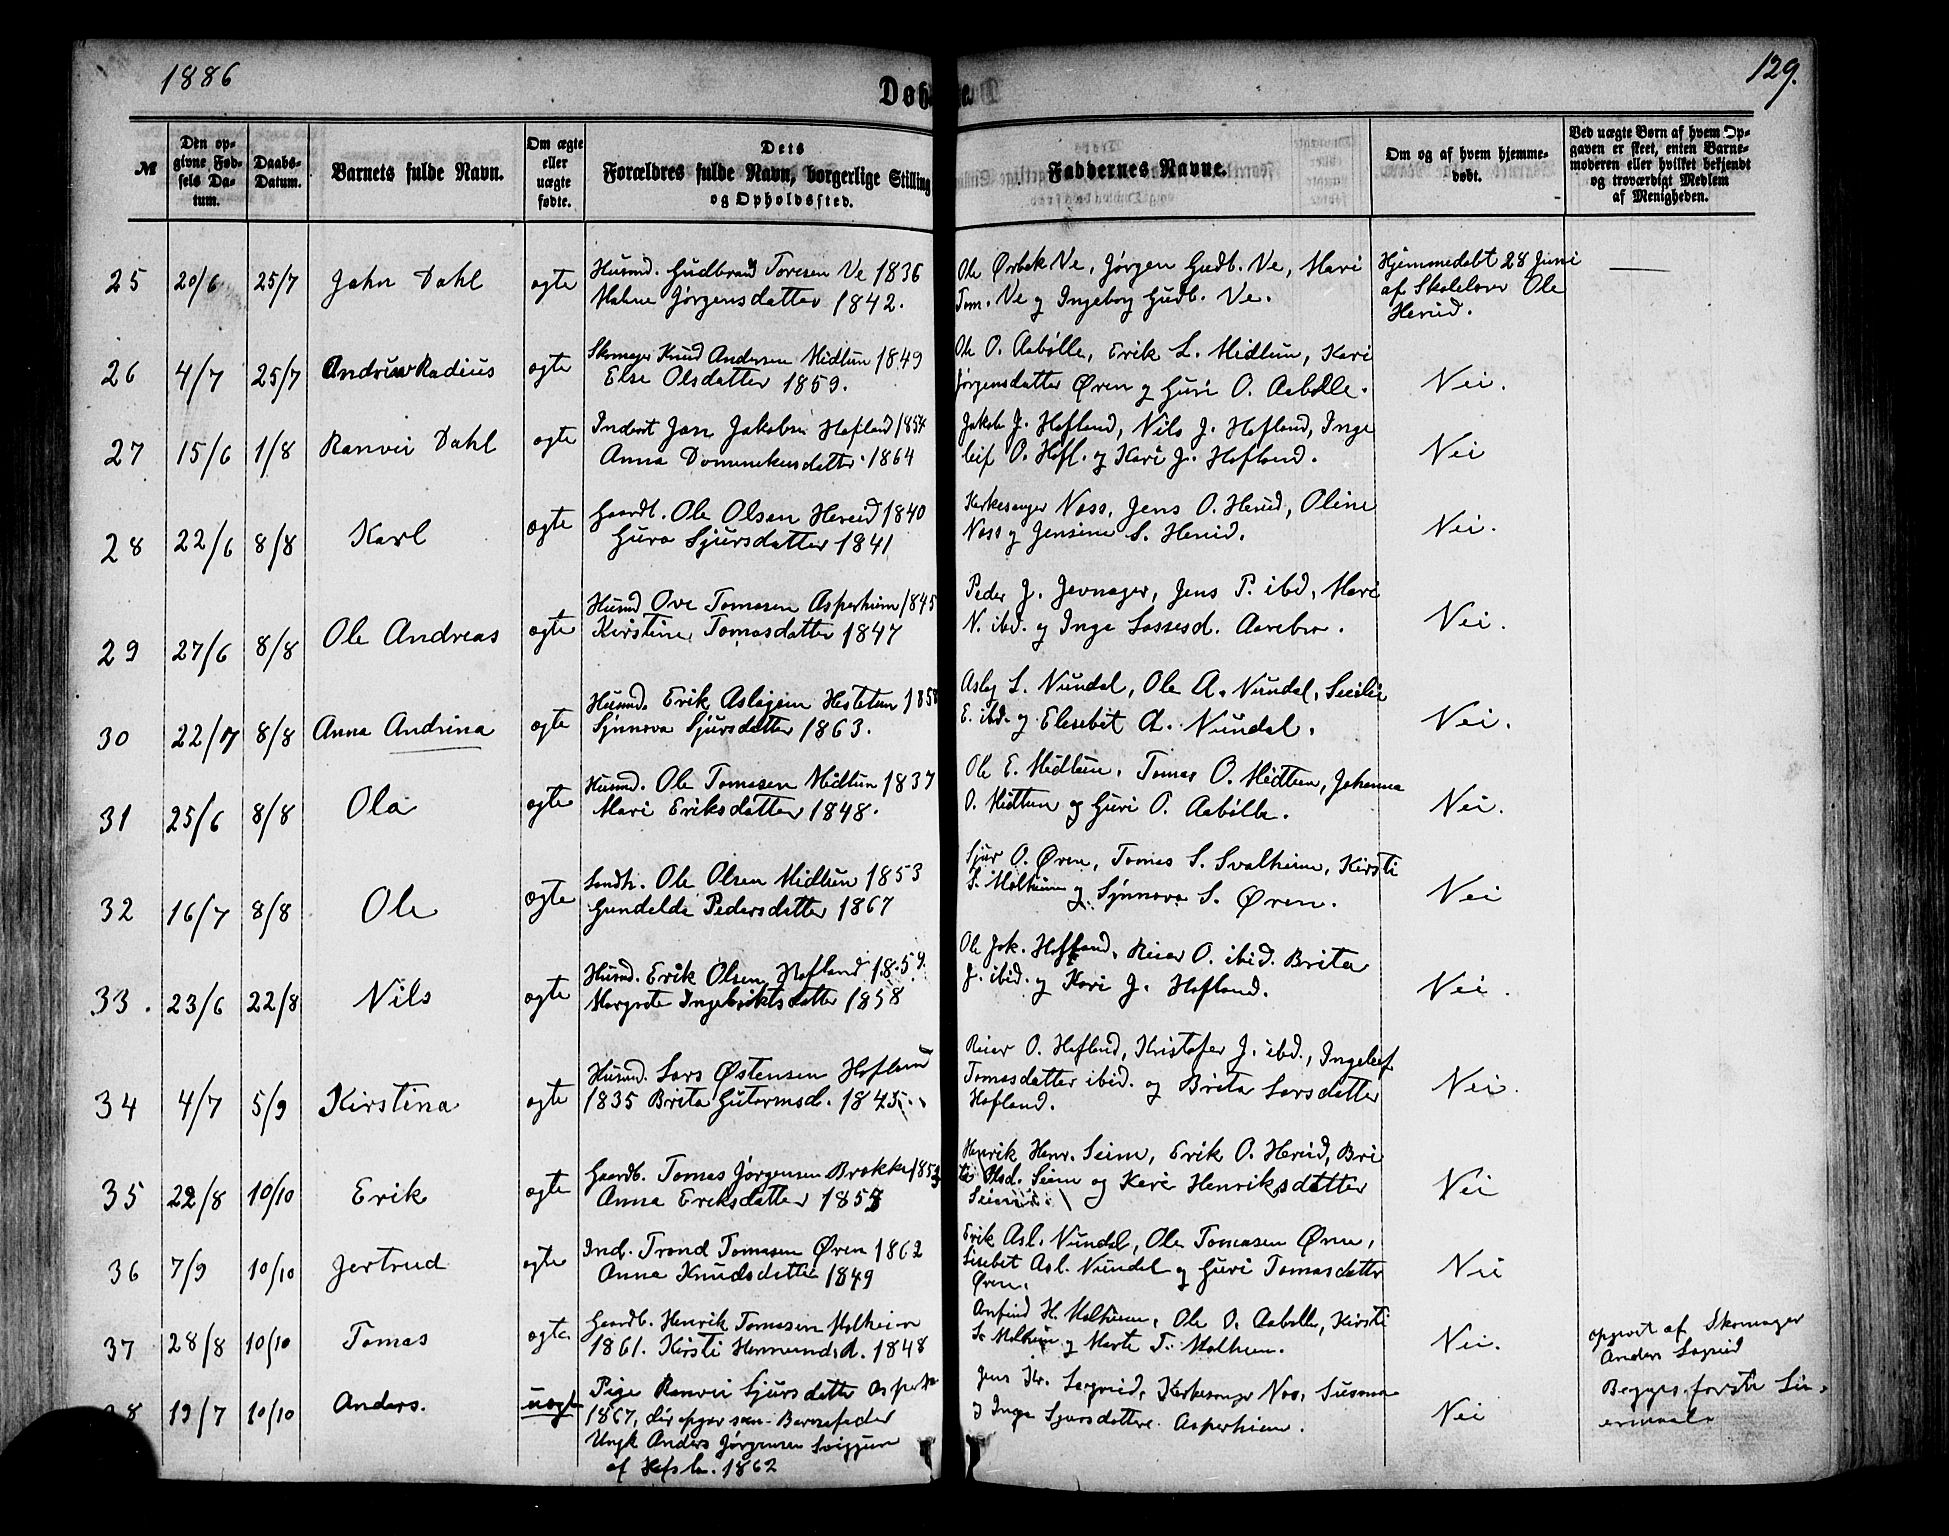 1886
129.
Døb
№
Den opgivne Fødsels Datum.
Daabs-Datum.
Barnets fulde Navn.
Om ægte eller uægte fødte.
Dets Forældres fulde Navn, borgerlige Stilling og Opholdssted.
Faddernes Navne.
Om og af hvem hjemmedøbt.
Ved uægte Børn af hvem Opgaven er skeet, enten Barnemoderen eller hvilket bekjendt og troværdigt Medlem af Menigheden.
25 20/6 25/7 John Dahl ægte
Husmd. Gudbrand Toresen Ve 1836
Malene Jørgensdatter 1842.
Ole Ørbek Ve, Jørgen Gudb. Ve, Mari
Tom. Ve og Ingeborg Gudb. Ve.
Hjemmedøbt 28 Juni
af Skolelærer Ole
Hereid.
26 4/7 25/7 Andreas Radius ægte
Skomager Knud Andersen Midtun 1849
Else Olsdatter 1859.
Ole O. Aabølle, Erik L. Midtun, Kari
Jørgensdatter Øren og Guri O. Aabølle.
Nei.
27 15/6 1/8 Ranvei Dahl ægte
Inderst Jan Jakobsen Hofland 1854
Anna Dominekusdatter 1864
Jakob J. Hofland, Nils J. Hofland, Inge
leif O. Hofl. og Kari J. Hofland.
Nei
28 22/6 8/8 Karl ægte
Gaardb. Ole Olsen Hereid 1840
Guro Sjursdatter 1841
Kirkesanger Noss, Jens O. Hereid, Oline
Noss og Jensine S. Hereid.
Nei.
29 27/6 8/8 Ole Andreas ægte
Husmd Ove Tomasen Asperheim 1845
Kirstine Tomasdatter 1847
Peder J. Jevnager, Jens P. ibd, Mari
N. ibd. og Inga Lassesd. Aarebro.
Nei.
30 22/7 8/8 Anna Andrina ægte
Husmd. Erik Aslagsen Hestetun 1858
Synnova Sjursdatter 1863.
Aslag L. Nundal, Ole A. Nundal, Seselie
E. ibd. og Elesebet A. Nundal.
Nei.
31 25/6 8/8 Ola ægte
Husmd. Ole Tomasen Midtun 1837
Mari Eriksdatter 1848.
Ole E. Midtun, Tomas O. Midtun, Johanna
O. Midtun og Guri O. Aabølle.
Nei.
32 16/7 8/8 Ole ægte
Landh. Ole Olsen Midtun 1853
Gundelda Pedersdatter 1867
Sjur O. Øren, Tomas S. Svalheim, Kirsti
S. Molheim og Synnova S. Øren.
Nei
33. 23/6 22/8 Nils ægte
Husmd. Erik Olsen Hofland 1859.
Margrete Ingebriktsdatter 1858
Ole Jak. Hofland, Reiar O. ibid. Brita
J. ibid. og Kari J. Hofland.
Nei.
34 4/7 5/9 Kirstina ægte
Husmd. Lars Østensen Hofland
1835 Brita Gutormsd. 1843.
Reiar O. Hofland, Kristofer J. ibd., Ingeleif
Tomasdatter ibid. og Brita Larsdatter
Hofland.
Nei.
35 22/8 10/10 Erik ægte
Gaardb. Tomas Jørgensen Brække 1853
Anna Eriksdatter 1853
Henrik Henr. Seim, Erik O. Hereid, Bri
ta Olsd. Seim og Kari Henriksdatter
Seim.
Nei
36 7/9 10/10 Jertrud ægte
Ind. Trond Tomasen Øren 1862
Anna Knudsdatter 1849
Erik Asl. Nundal, Ole Tomasen Øren,
Lisebet Asl. Nundal og Guri Tomasdatter
Øren.
Nei
37 28/8 10/10 Tomas ægte
Gaardb. Henrik Tomasen Molheim
1861. Kirsti Hermundsd. 1848
Anfind H. Molheim, Ole O. Aabølle, Kirsti
S. Molheim og Marte T. Molheim.
Nei.
38 19/7 10/10 Anders. uægte
Pige Ranvei Sjursdatter Asperh
1867, der opgav som Barnefader
Ungk Anders Jørgensen
af Hafslo. 1862
Jens Kr. Lægreid, Kirkesanger Nos, Susanna
og Inga Sjursdøttre Asperheim.
Nei
opgivet af Skomager
Anders Lægreid
Begges første Lei-
ermaal.